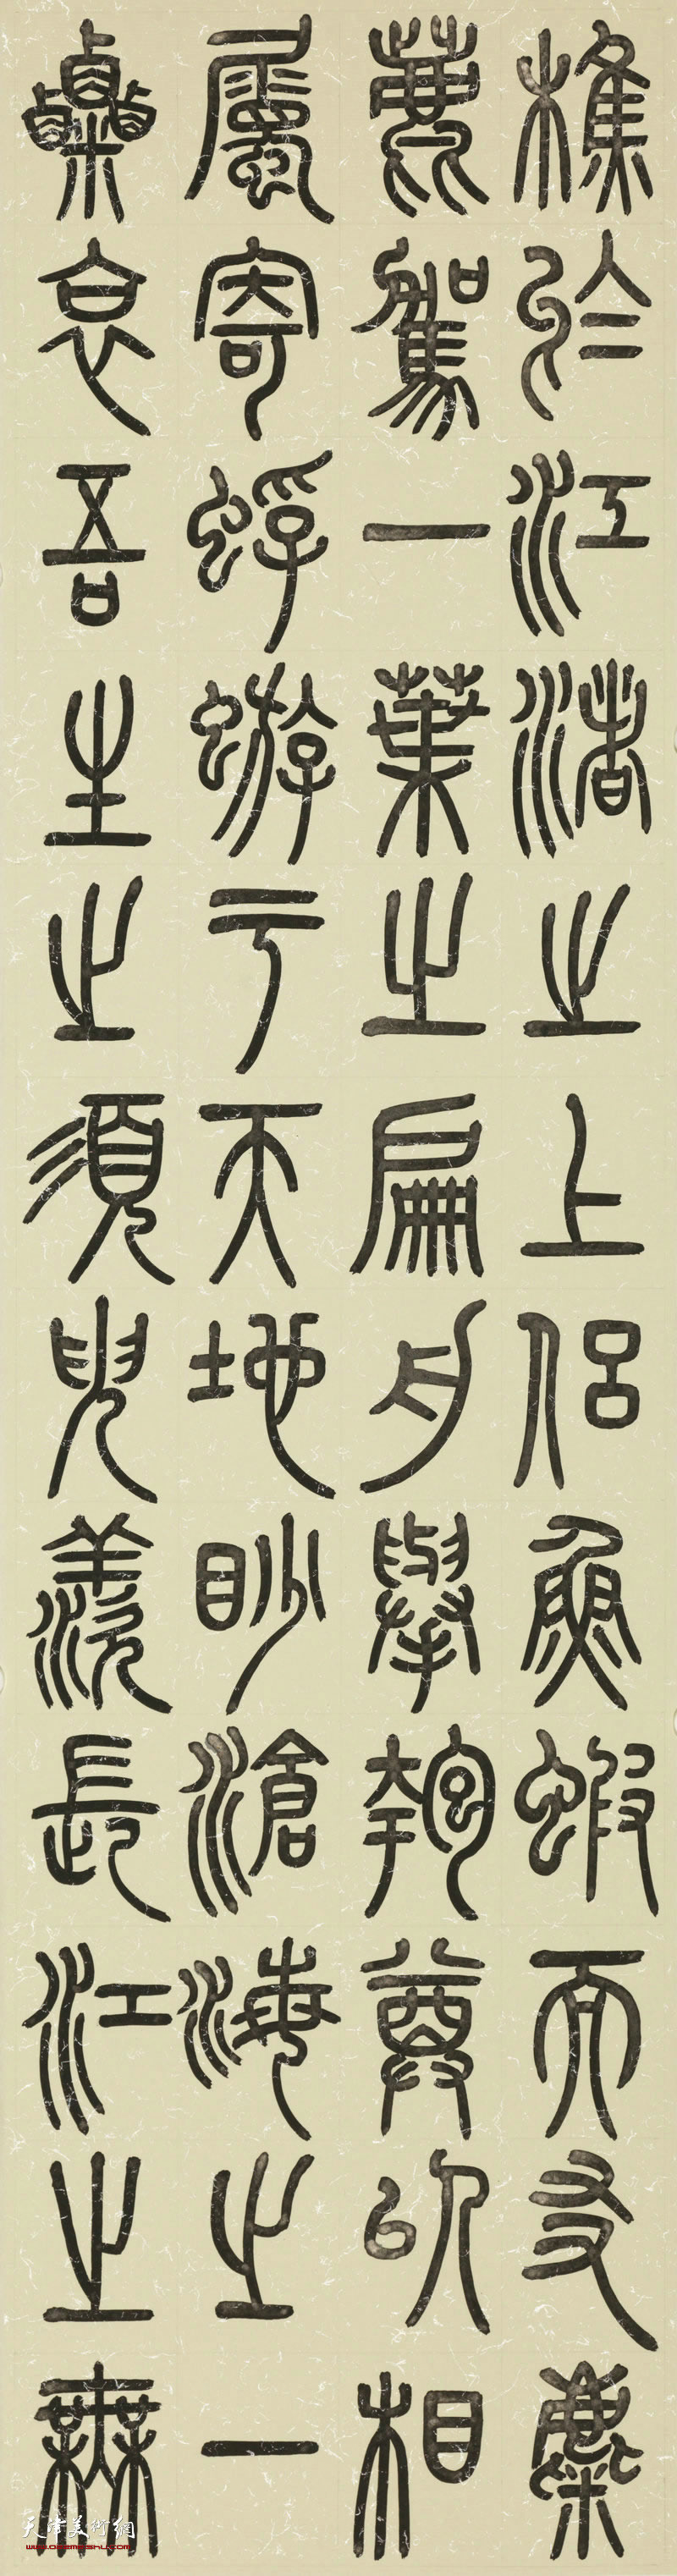 樵於江渚之上侣魚蝦而友麋
鹿駕一葉之扁舟舉匏尊以相
屬寄蜉蝣于天地眇滄海之一
粟哀吾生之須臾羨長江之無
天津美術網